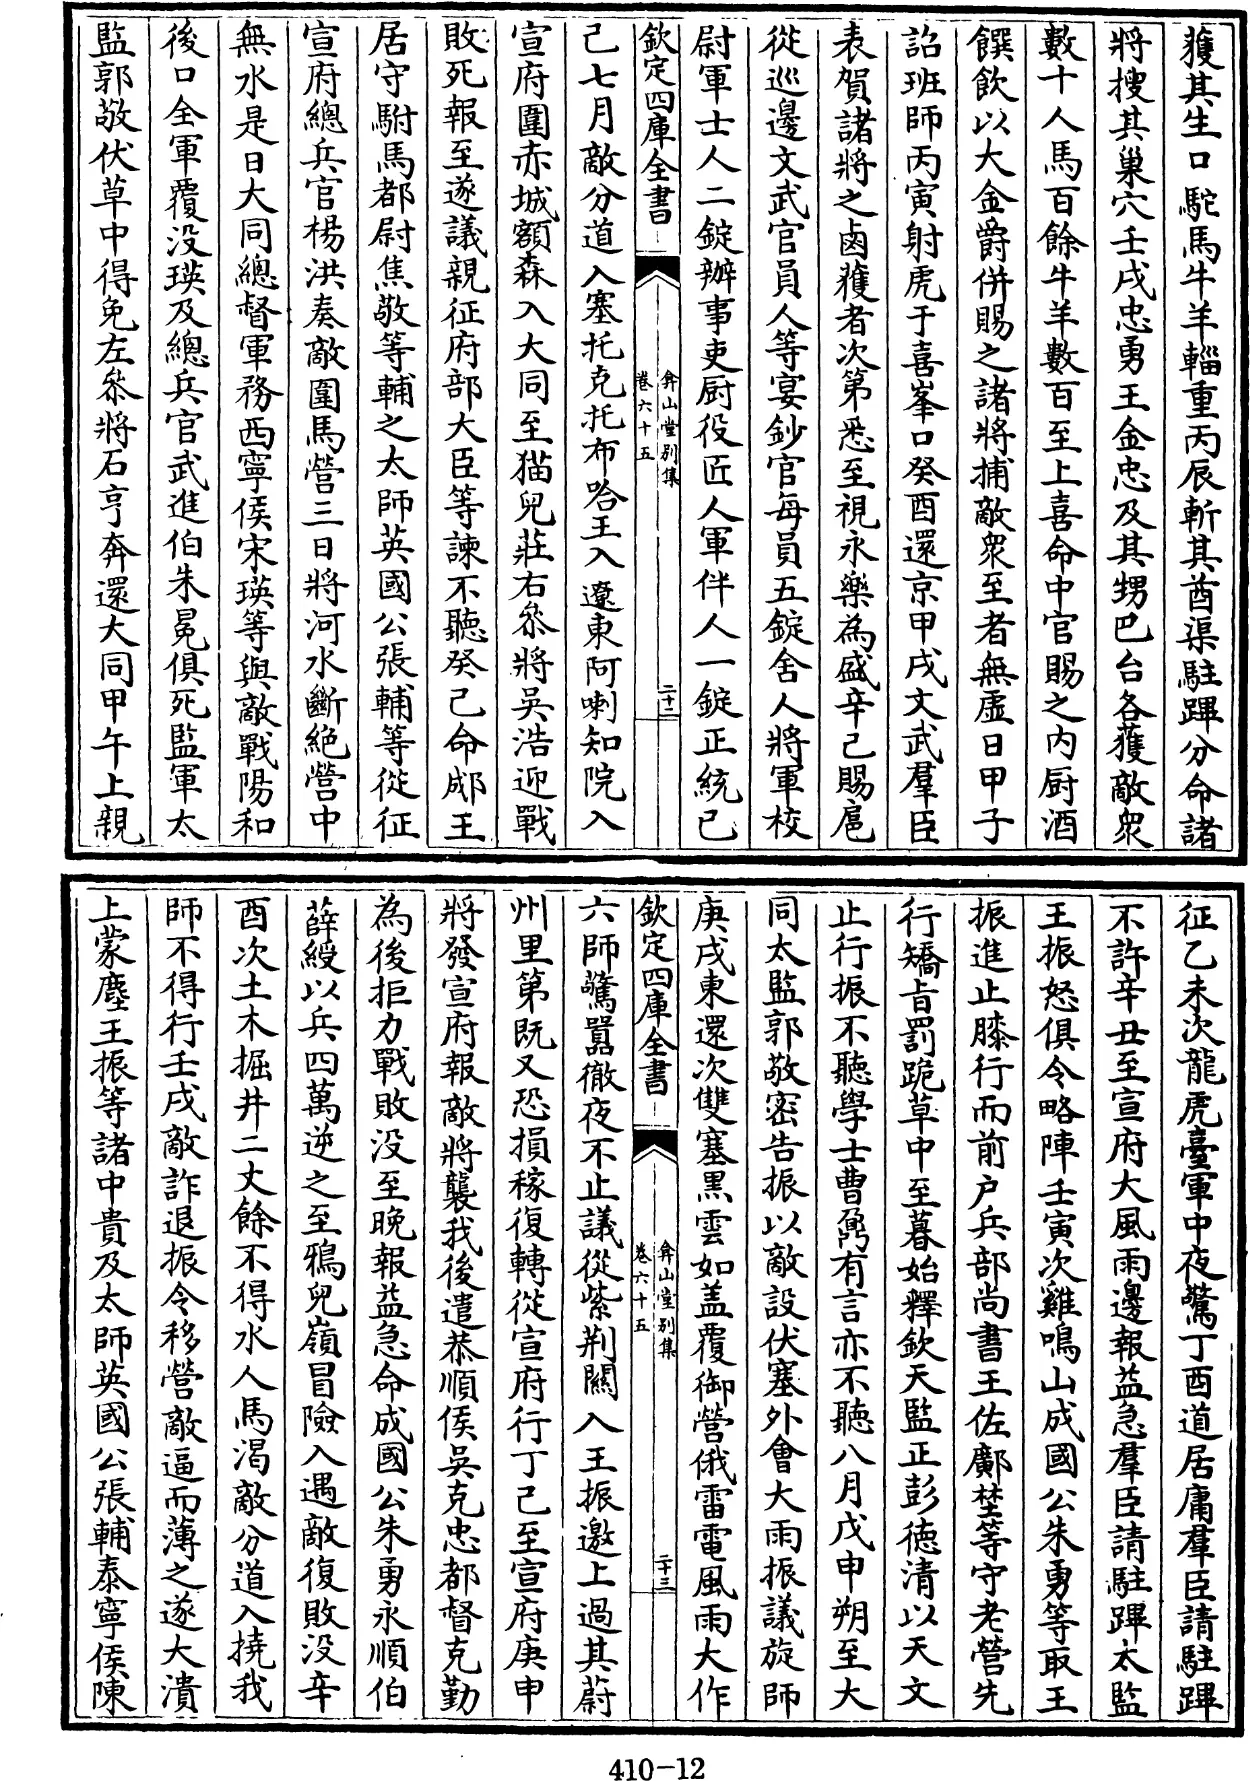 獲其生口駝馬牛羊輜重丙辰斬其酋渠駐蹕分命諸
將搜其巢穴壬戌忠勇王金忠及其甥巴台各獲敵衆
數十人馬百餘牛羊數百至上喜命中官賜之内厨酒
饌飲以大金爵併賜之諸將捕敵衆至者無虛日甲子
詔班師丙寅射虎于喜峯口癸酉還京甲戌文武羣臣
表賀諸將之鹵獲者次第悉至視永樂為盛辛己賜扈
從巡邊文武官員人等宴鈔官每員五錠舍人將軍校
尉軍士人二錠辦事吏厨役匠人軍伴人一錠正統己
欽定四庫全書
弇山堂别集
卷六十五
二十二
己七月敵分道入塞托克托布哈王入遼東阿喇知院入
宣府圍赤城額森入大同至猫兒莊右叅將吳浩迎戰
敗死報至遂議親征府部大臣等諫不聽癸己命郕王
居守駙馬都尉焦敬等輔之太師英國公張輔等從征
宣府總兵官楊洪奏敵圍馬營三日將河水斷絶營中
無水是日大同總督軍務西寧侯宋瑛等與敵戰陽和
後口全軍覆没瑛及總兵官武進伯朱冕俱死監軍太
監郭敬伏草中得免左叅將石亨奔還大同甲午上親
征乙未次龍虎臺軍中夜驚丁酉道居庸羣臣請駐蹕
不許辛丑至宣府大風雨邊報益急羣臣請駐蹕太監
王振怒俱令略陣壬寅次雞鳴山成國公朱勇等取王
振進止膝行而前户兵部尚書王佐鄺埜等守老營先
行矯旨罰跪草中至暮始釋欽天監正彭德清以天文
止行振不聽學士曹鼐有言亦不聽八月戊申朔至大
同太監郭敬密告振以敵設伏塞外會大雨振議旋師
庚戌東還次雙塞黑雲如盖覆御營俄雷電風雨大作
欽定四庫全書
弇山堂别集
卷六十五
二十三
六師驚囂徹夜不止議從紫荆關入王振邀上過其蔚
州里第既又恐損稼復轉從宣府行丁己至宣府庚申
將發宣府報敵將襲我後遣恭順侯吳克忠都督克勤
為後拒力戰敗没至晚報益急命成國公朱勇永順伯
薛綬以兵四萬逆之至鴉兒嶺冒險入遇敵復敗没辛
酉次土木掘井二丈餘不得水人馬渴敵分道入撓我
師不得行壬戌敵詐退振令移營敵逼而薄之遂大潰
上蒙塵王振等諸中貴及太師英國公張輔泰寧侯陳
410-12